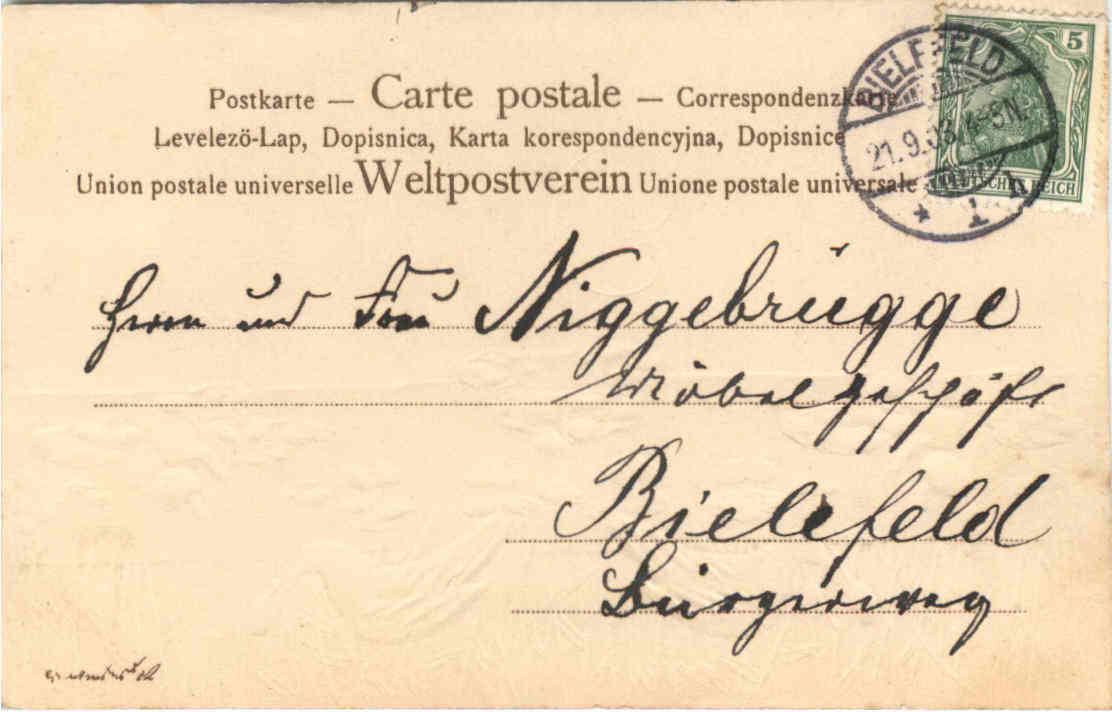 Postkarte — Carte postale — Correspondenzkarte
Levelezö-Lap, Dopisnica, Karta korespondencyjna, Dopisnice
Union postale universelle Weltpostverein Unione postale universale
5
DEUTSCHES REICH
BIELEFELD
21. 9. 03. 4-5N.
* 1 b
Herrn und Frau Niggebrügge
Möbelgeschäft
Bielefeld
Bürgerweg